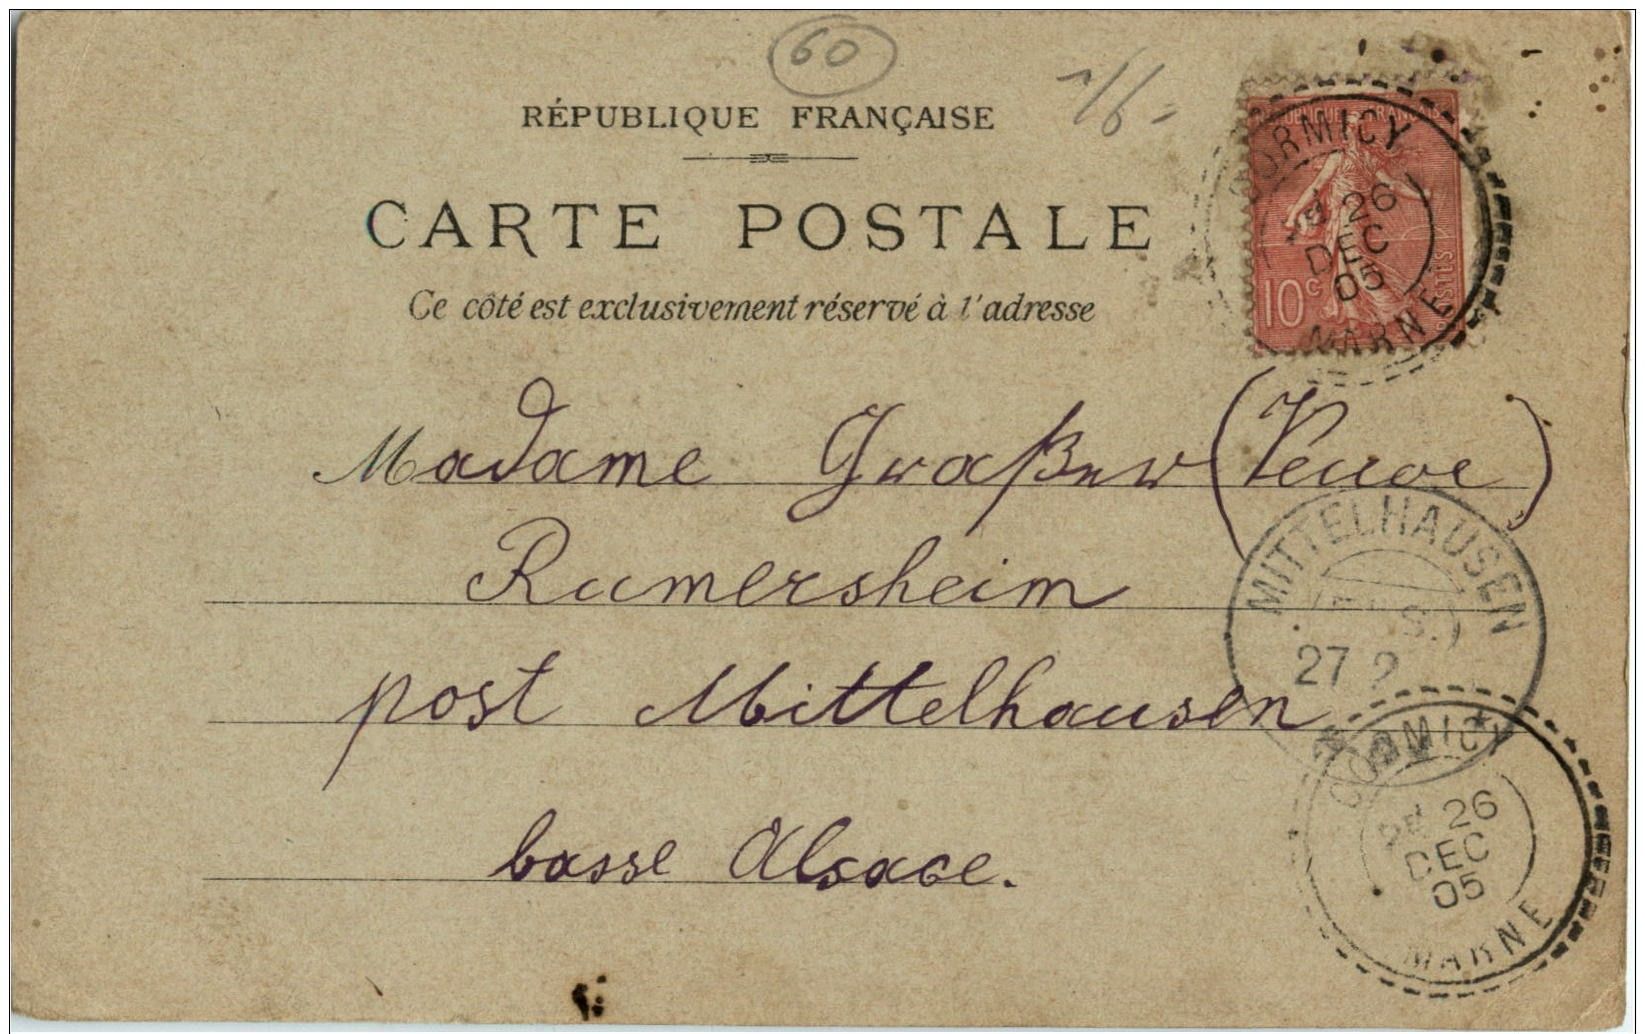 60
RÉPUBLIQUE FRANÇAISE
CARTE POSTALE
Ce côté est exclusivement réservé à l'adresse
10c
POSTES
CORMICY
26
DEC
05
MARNE
Madame Graßer (Veuve)
Rumersheim
post Mittelhausen
basse Alsace.
MITTELHAUSEN
27
CORMICY
26
DEC
05
MARNE